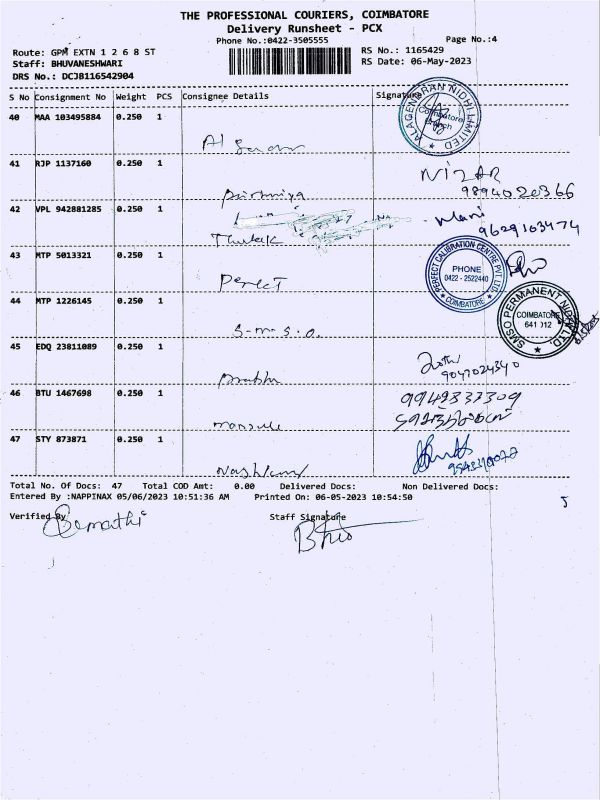 THE PROFESSIONAL COURIERS, COIMBATORE
Delivery Runsheet - PCX
Phone No.:0422-3505555
Page No.:4
Route: GPM EXTN 1 2 6 8 ST
RS No.: 1165429
Staff: BHUVANESHWARI
RS Date: 06-May-2023
DRS No.: DCJB116542904
S No Consignment No Weight PCS Consignee Details Signature
40 MAA 103495884 0.250 1
ALAGENDRAN NIDHI LIMITED
Coimbatore
Branch
41 RJP 1137160 0.250 1
NIZAR
9894020366
42 VPL 942881285 0.250 1
Mani
9629103474
43 MTP 5013321 0.250 1
Perfect
PERFECT CALIBRATION CENTRE PVT. LTD.
PHONE
0422 - 2522440
COIMBATORE
44 MTP 1226145 0.250 1
S-m-s-o.
SMSO PERMANENT NIDHI LTD.
COIMBATORE
641 012
45 EDQ 23811089 0.250 1
Prabhu
9047024340
46 BTU 1467698 0.250 1
9942337309
47 STY 873871 0.250 1
Total No. Of Docs: 47 Total COD Amt: 0.00 Delivered Docs: Non Delivered Docs:
Entered By :NAPPINAX 05/06/2023 10:51:36 AM Printed On: 06-05-2023 10:54:50
Verified By
Staff Signature